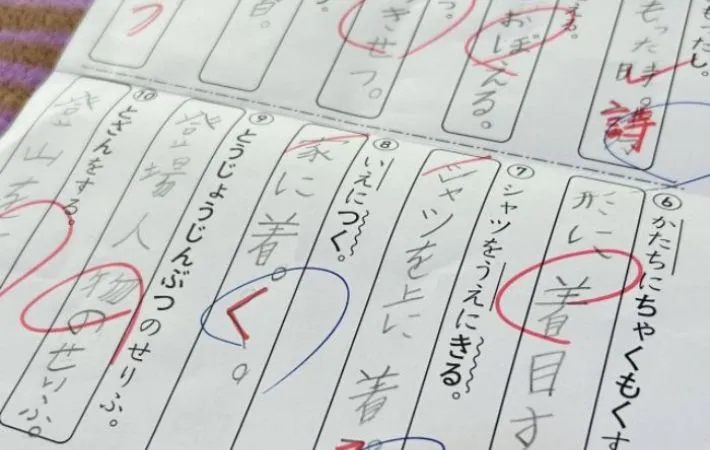 もった時。
詩
おぼえる。
きせつ。
⑥かたちにちゃくもくす
形に、着目す
⑦シャツをうえにきる。
シャツを上に着。
⑧いえにつく。
家に着。
く。
⑨とうじょうじんぶつのせりふ。
登場人物のせりふ。
⑩とざんをする。
登山を